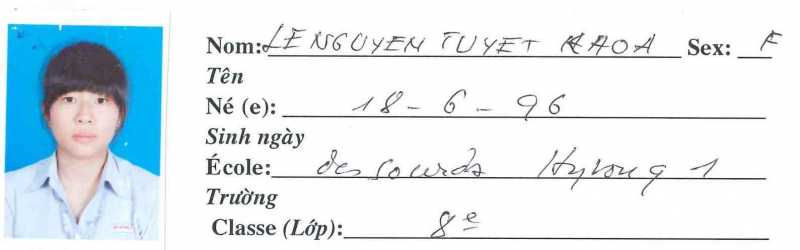 Nom: LE NGUYEN TUYET KHOA Sex: F
Tên
Né (e): 18 - 6 - 96
Sinh ngày
École: des sourds 1
Trường
Classe (Lớp): 8e